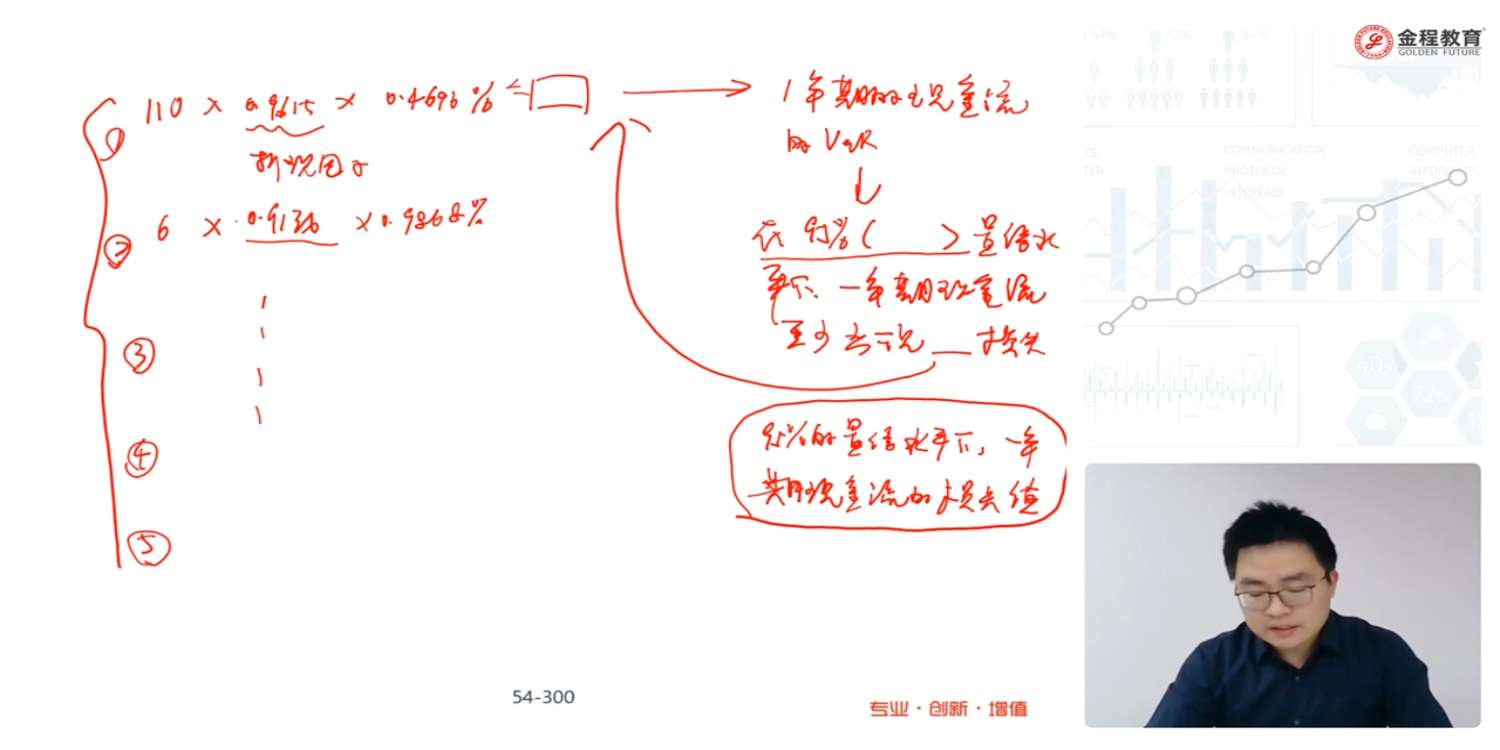 金程教育
GOLDEN FUTURE
① 110 × 0.9615 × 0.4696% → 1年期的现金流
的VaR
折现因子
② 6 × 0.9136 × 0.9868%
在95%( )置信水
平下、一年期现金流
至少亏损 损失
③
④
⑤
95%的置信水平下,一年
期现金流的损失值
COMMUNICATION
PROTOCOL
INTERFACE
COMPUTER
40%
72%
54-300
专业·创新·增值